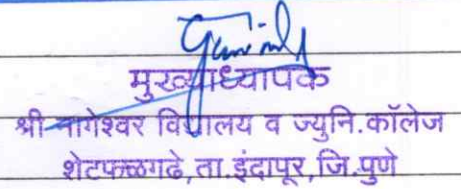 मुख्याध्यापक
श्री नागेश्वर विद्यालय व ज्युनि.कॉलेज
शेटफळगढे, ता.इंदापूर, जि.पुणे